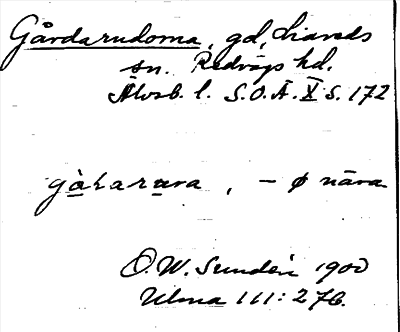 Gårdarudorna, gd, Liareds
sn. Redvägs hd.
Älvsb. l. S.O.Ä. X S. 172
gàƚarưra, – ø nära
O. W. Sundén 1900
Ulma 111:276.